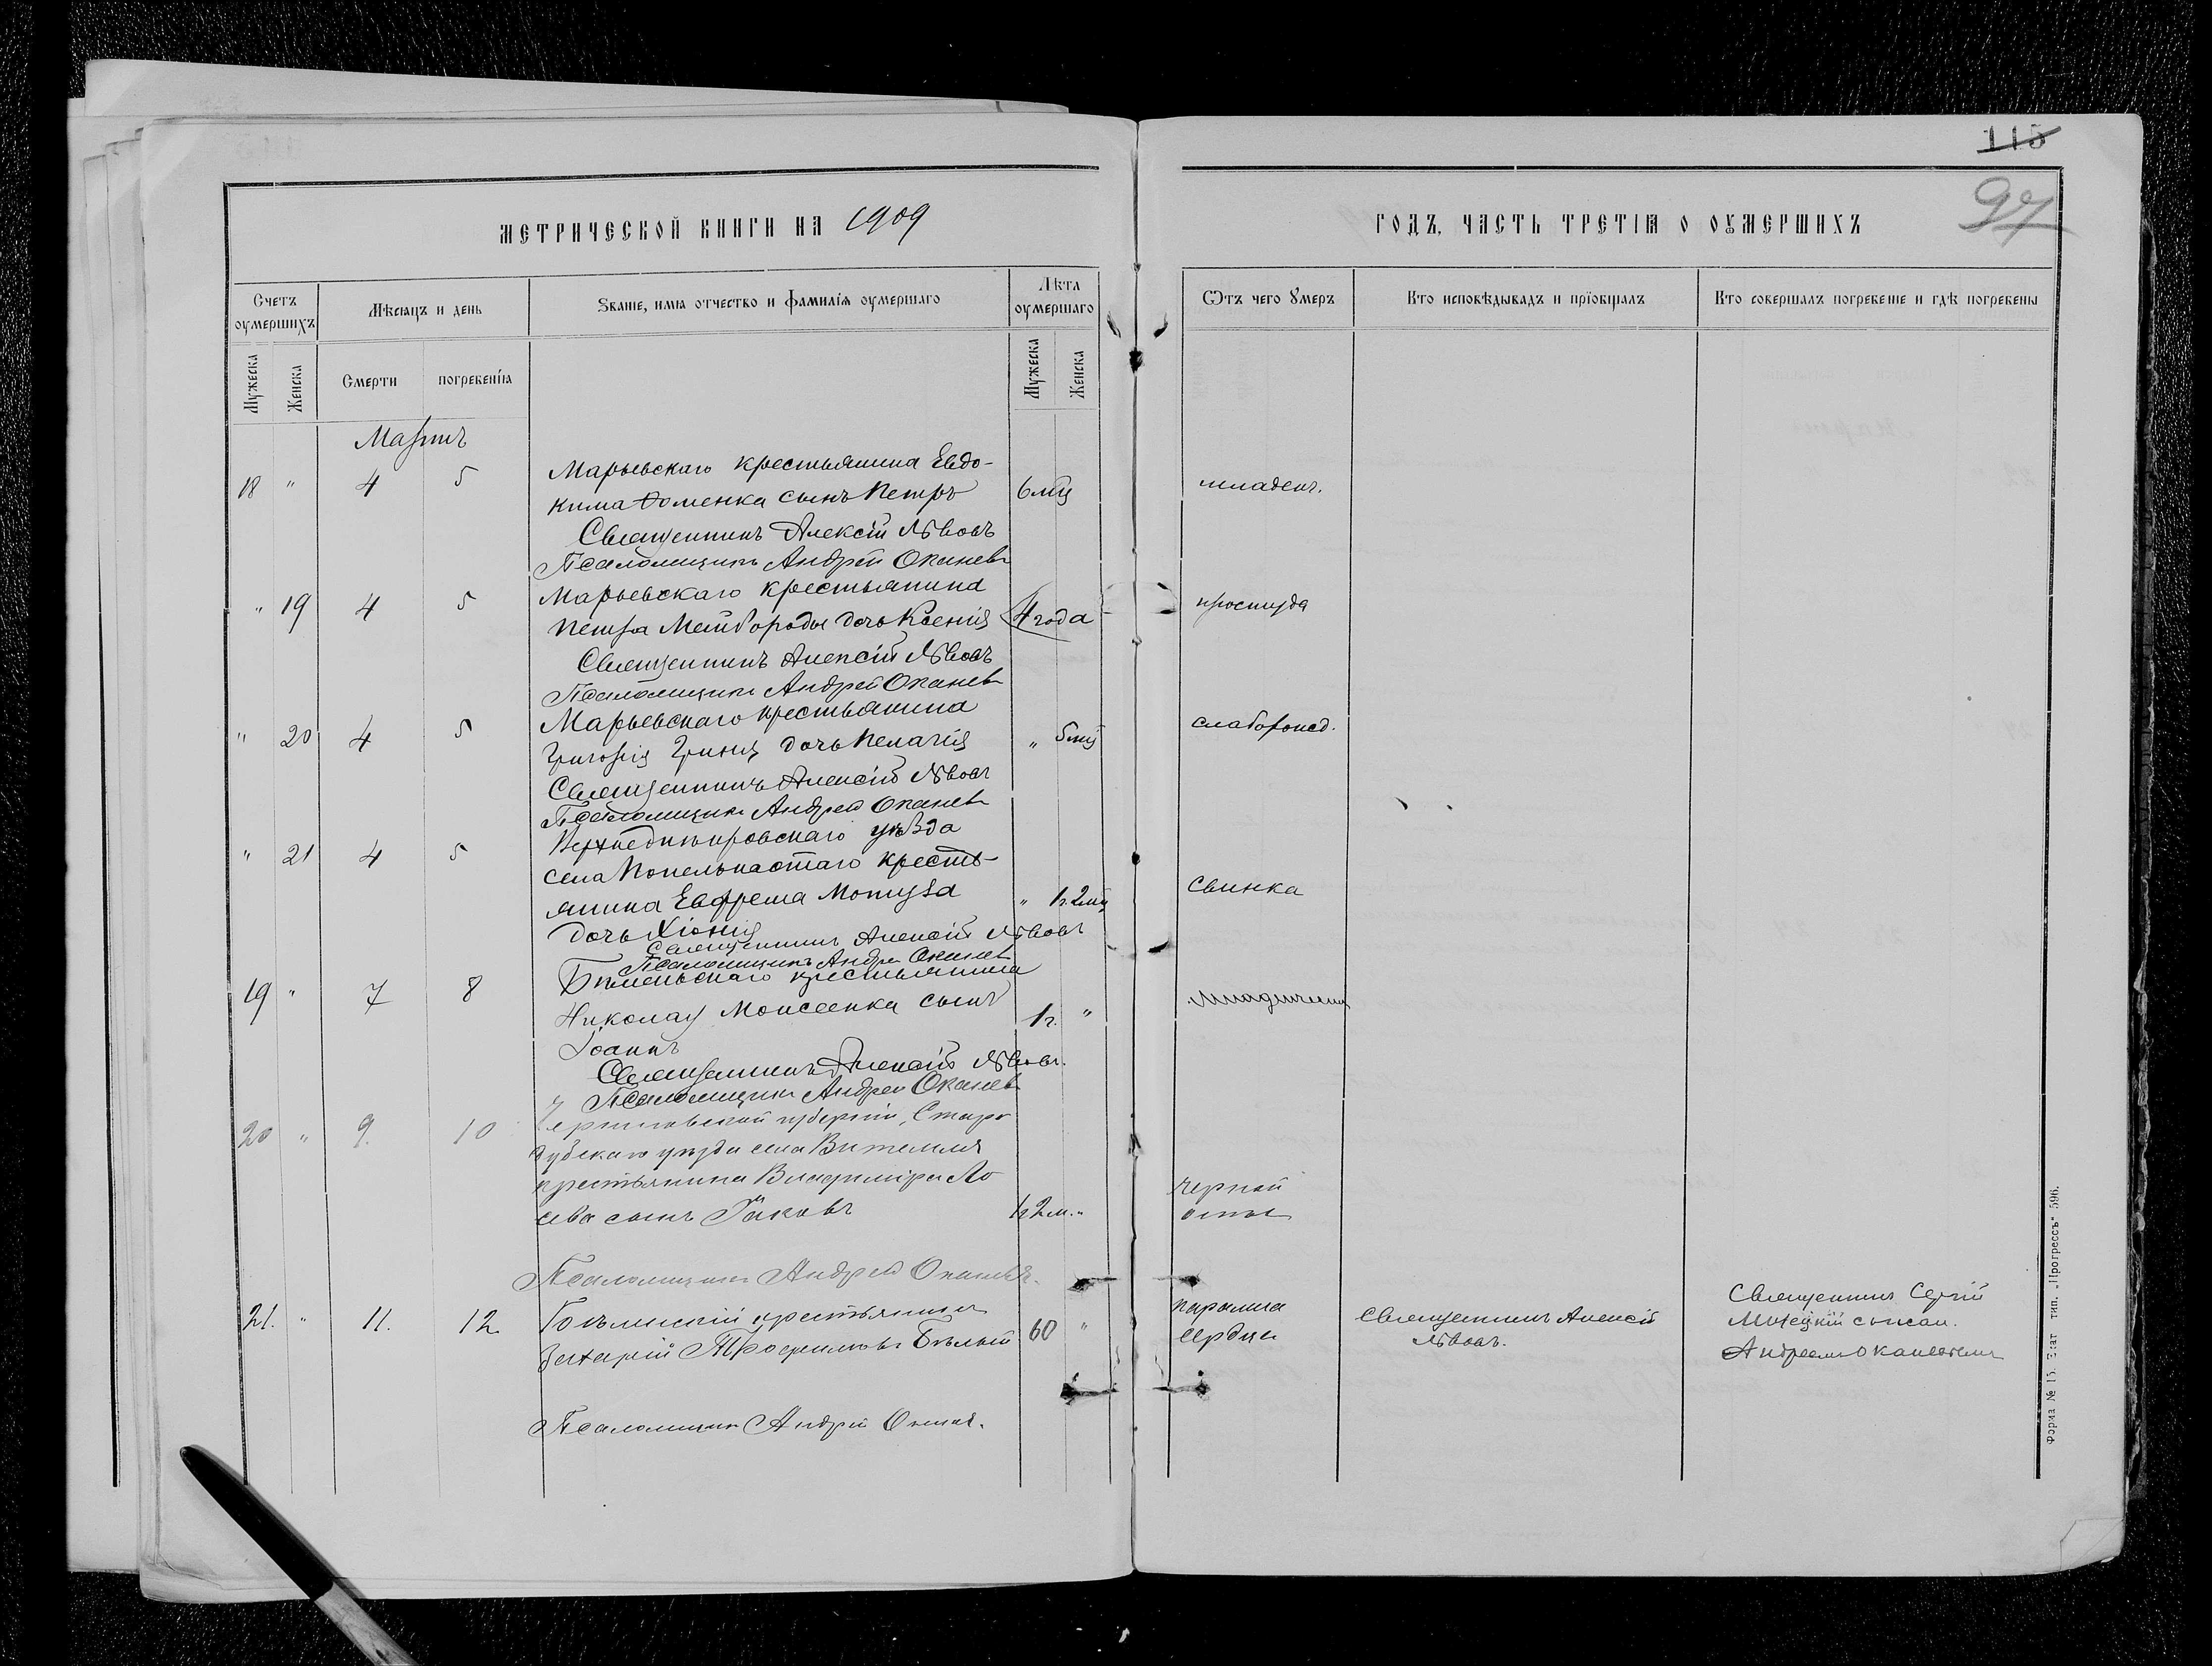 115
97
МЕТРИЧЕСКОЙ КНИГИ НА 1909
ГОДЪ, ЧАСТЬ ТРЕТІѦ О ОУМЕРШИХЪ
Счетъ оумершихъ
Мѣсяцъ и день
Званіе, имя отчество и фамилія оумершаго
Лѣта оумершаго
Ѿтъ чего умеръ
Кто исповѣдывадъ и пріобщалъ
Кто совершалъ погребеніе и гдѣ погребены
Мужеска
Женска
Смерти
погребенія
Мужеска
Женска
Мартъ
18 " 4 5 Марьевскаго крестьянина Евдо-
кима Фоменка сынъ Петръ 6 мц младенч.
Священникъ Алексій Львовъ
Псаломщикъ Андрей Оканевъ
" 19 4 5 Марьевскаго крестьянина
Петра Ксенія 4 года простуда
Священникъ Алексій Львовъ
Псаломщикъ Андрей Оканевъ
" 20 4 5 Марьевскаго крестьянина
Григорія дочь Пелагія " 5 мц слаборожд.
Священникъ Алексій Львовъ
Псаломщикъ Андрей Оканевъ
" 21 4 5 Верхнеднѣпровскаго уѣзда
села Попельнастаго кресть-
янина Евфрема Мотуза " 1 г. 2 мц свинка
дочь Хіонія
Священникъ Алексій Львовъ
Псаломщикъ Андрей Оканевъ
19 " 7 8 крестьянина
Николая Моисеенка сынъ 1 г. "
Іоаннъ
Священникъ Алексій Львовъ.
Псаломщикъ Андрей Оканевъ
20 " 9. 10 Черниговской губерніи, Старо
дубскаго уѣзда села Витемля
крестьянина Владиміра Ло
сева сынъ Іаковъ 1 г. 2 м. " черной
оспы
Псаломщикъ Андрей Оканевъ.
21. " 11. 12. крестьянинъ
Захарій Трофимовъ Бѣлый 60 "
сердца
Священникъ Алексій
Львовъ.
Священникъ Сергій
Андреемъ Оканевымъ
Псаломщикъ Андрей
Форма № 15. Елат тип. „Прогрессъ“ 596.